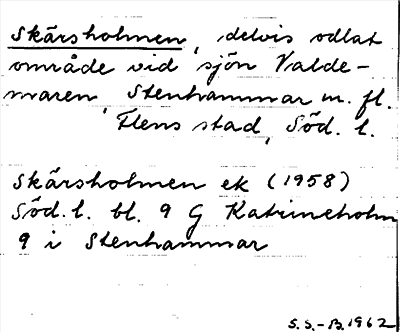 Skärsholmen, delvis odlat
område vid sjön Valde-
maren, Stenhammar m. fl.
Flens stad, Söd. l.
Skärsholmen ek (1958)
Söd. l. bl. 9 G Katrineholm
9 i Stenhammar
S.S.-B. 1962